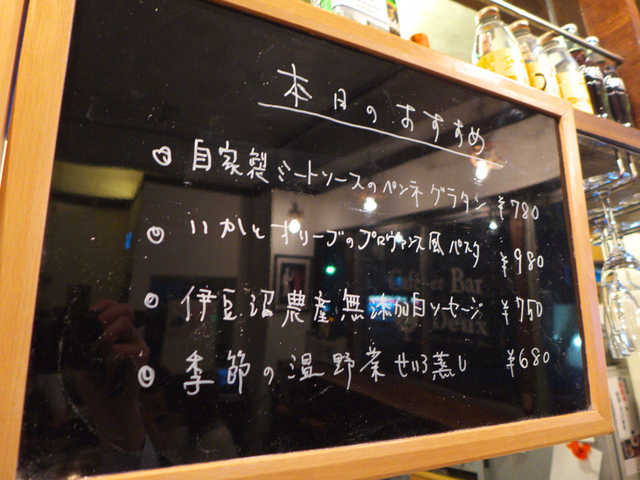 本日のおすすめ
◎ 自家製ミートソースのペンネグラタン ¥780
◎ いかとオリーブのプロヴァンス風パスタ ¥980
◎ 伊豆沼農産無添加白ソーセージ ¥750
◎ 季節の温野菜せいろ蒸し ¥680
Café et Bar
Deux